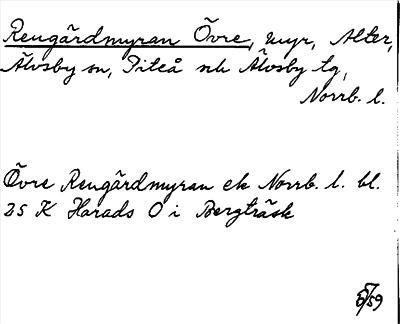 Rengårdmyran Övre, myr, Alter,
Älvsby sn, Piteå nk Älvsby tg,
Norrb. l.
Övre Rengårdmyran ek Norrb. l. bl.
25 K Harads O i Bergträsk
/59